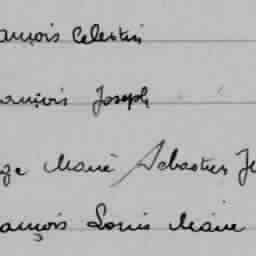 ançois Celestin
ançois Joseph
ge Marie Sebastien Je
ançois Louis Marie